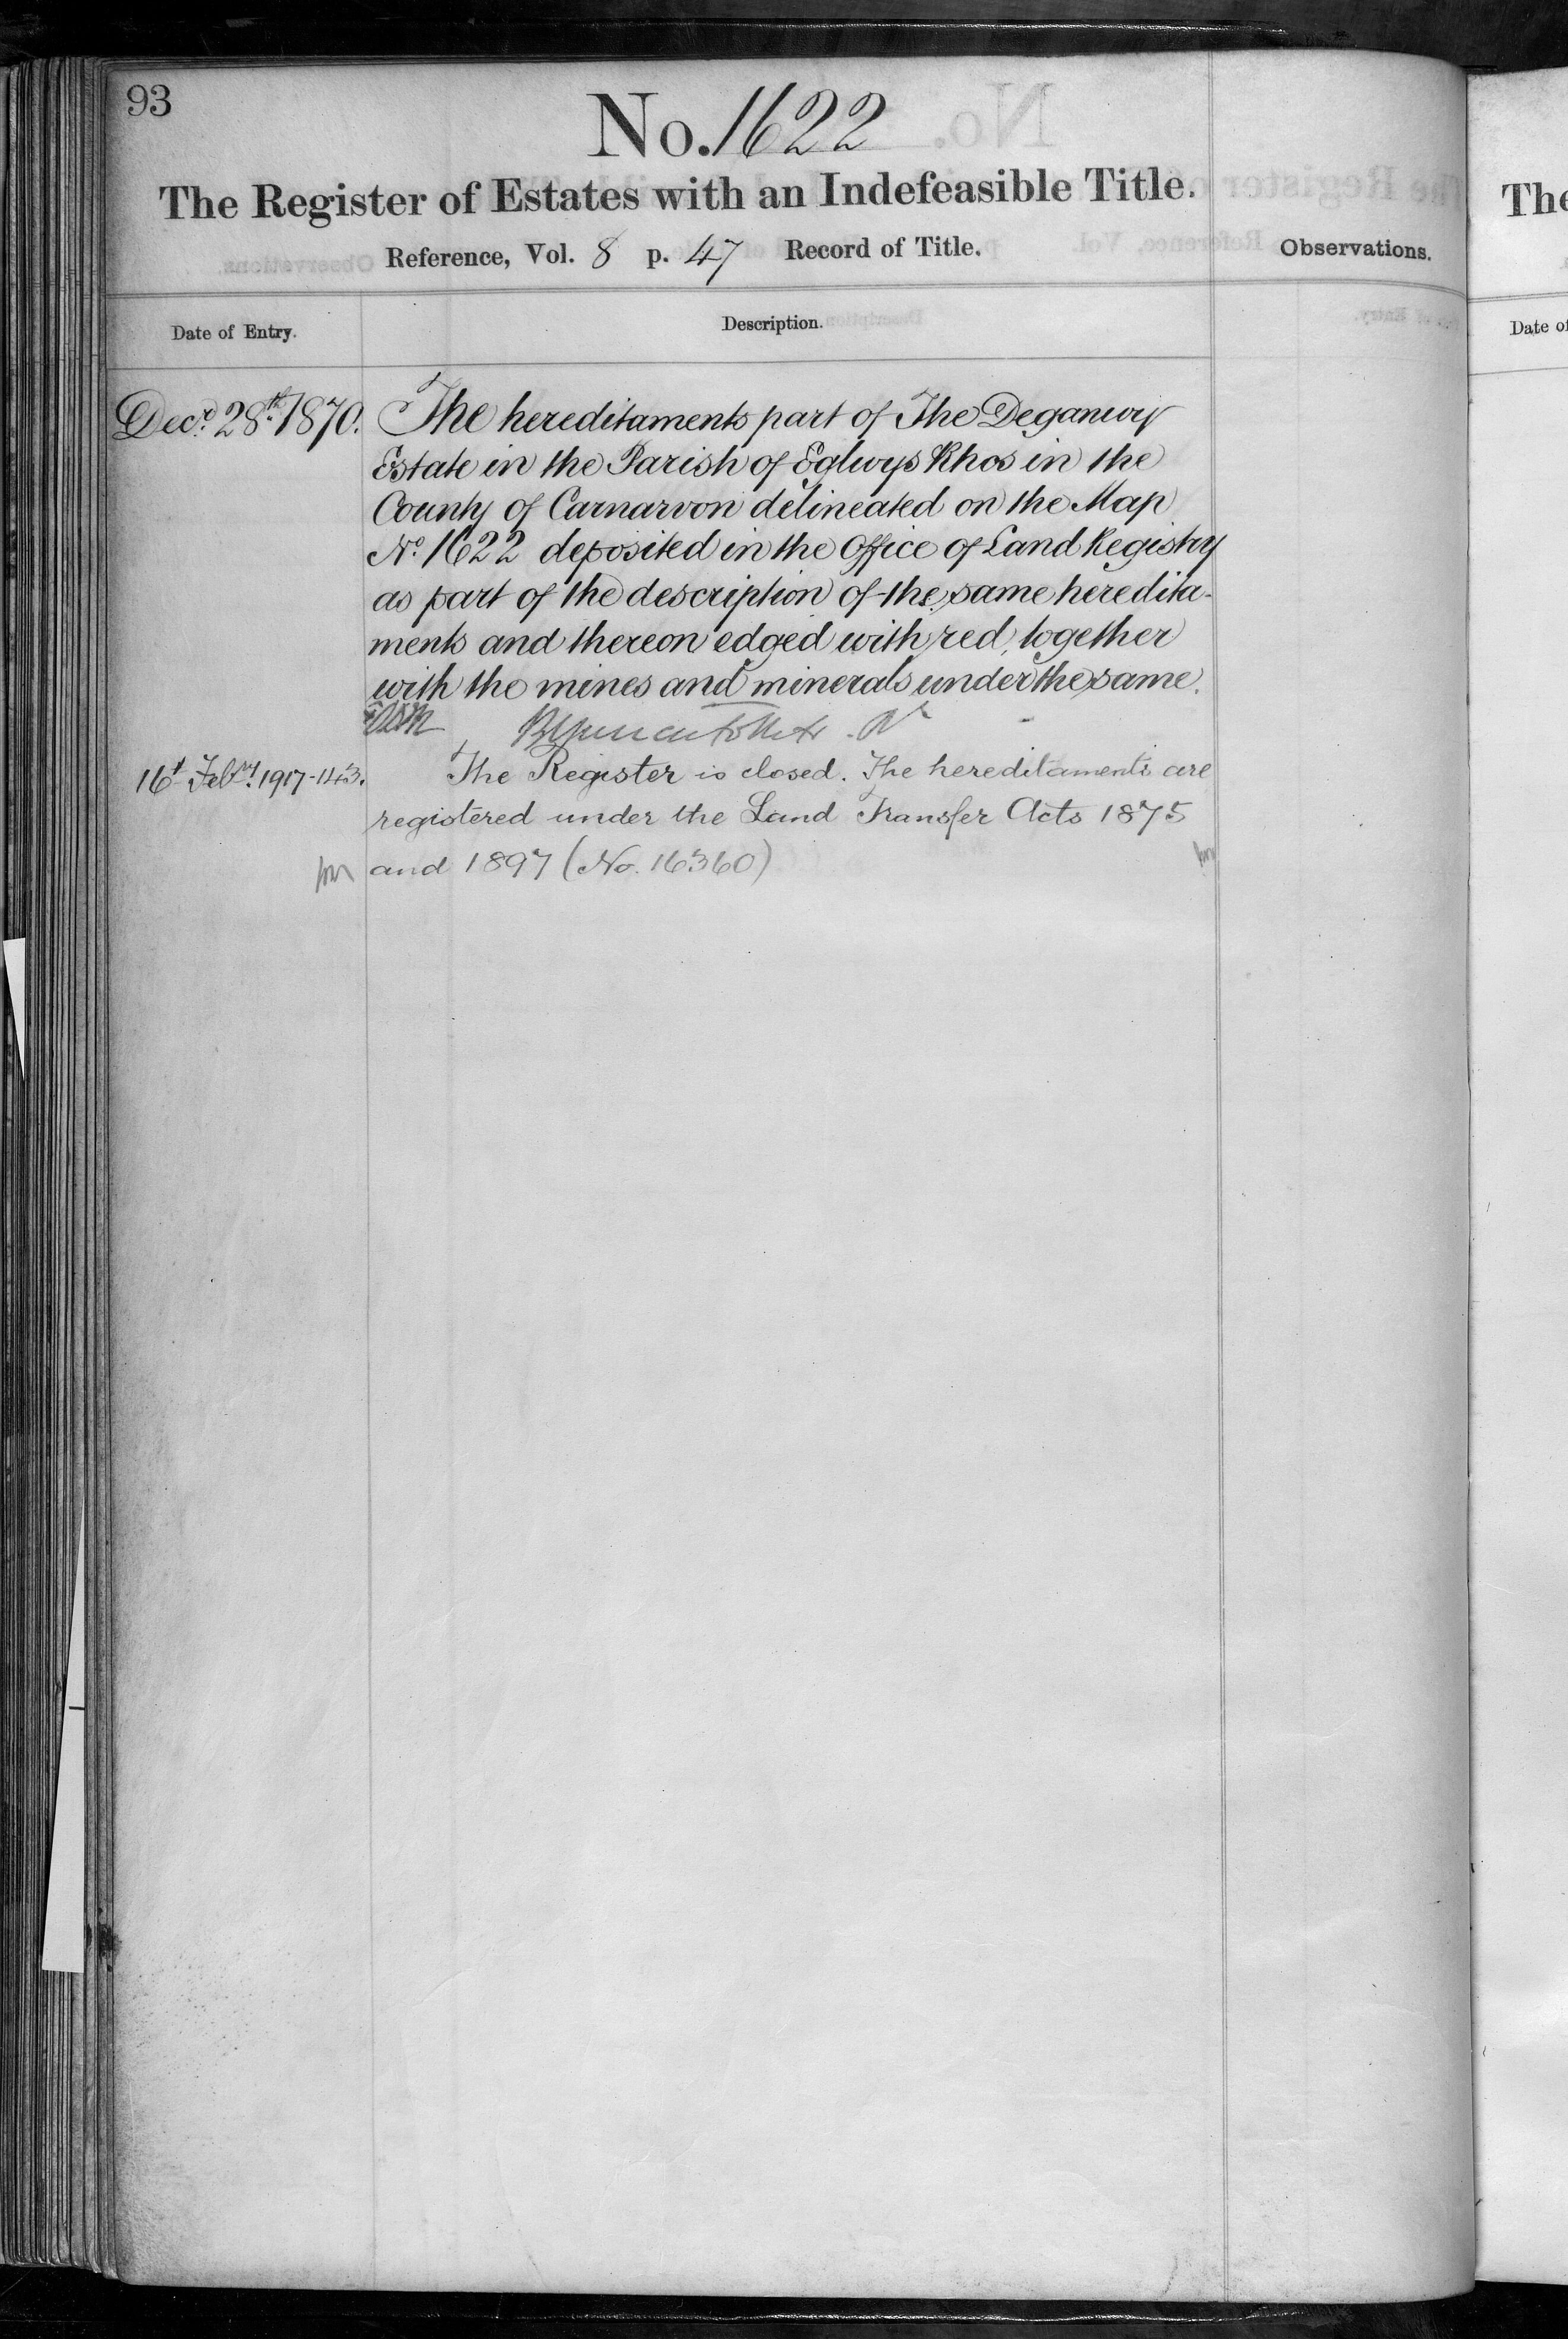 93
No. 1622
The Register of Estates with an Indefeasible Title.
Reference, Vol. 8 p. 47 Record of Title.
Observations.
Date of Entry.
Description.
Decr. 28th. 1870. The hereditaments part of The Deganwy
Estate in the Parish of Eglwys Rhos in the
County of Carnarvon delineated on the Map
No. 1622 deposited in the Office of Land Registry
as part of the description of the same heredita-
ments and thereon edged with red, together
with the mines and minerals under the same.
16th Feby. 1917-143. The Register is closed. The hereditaments are
registered under the Land Transfer Acts 1875
and 1897 (No. 16360)
The
Date of